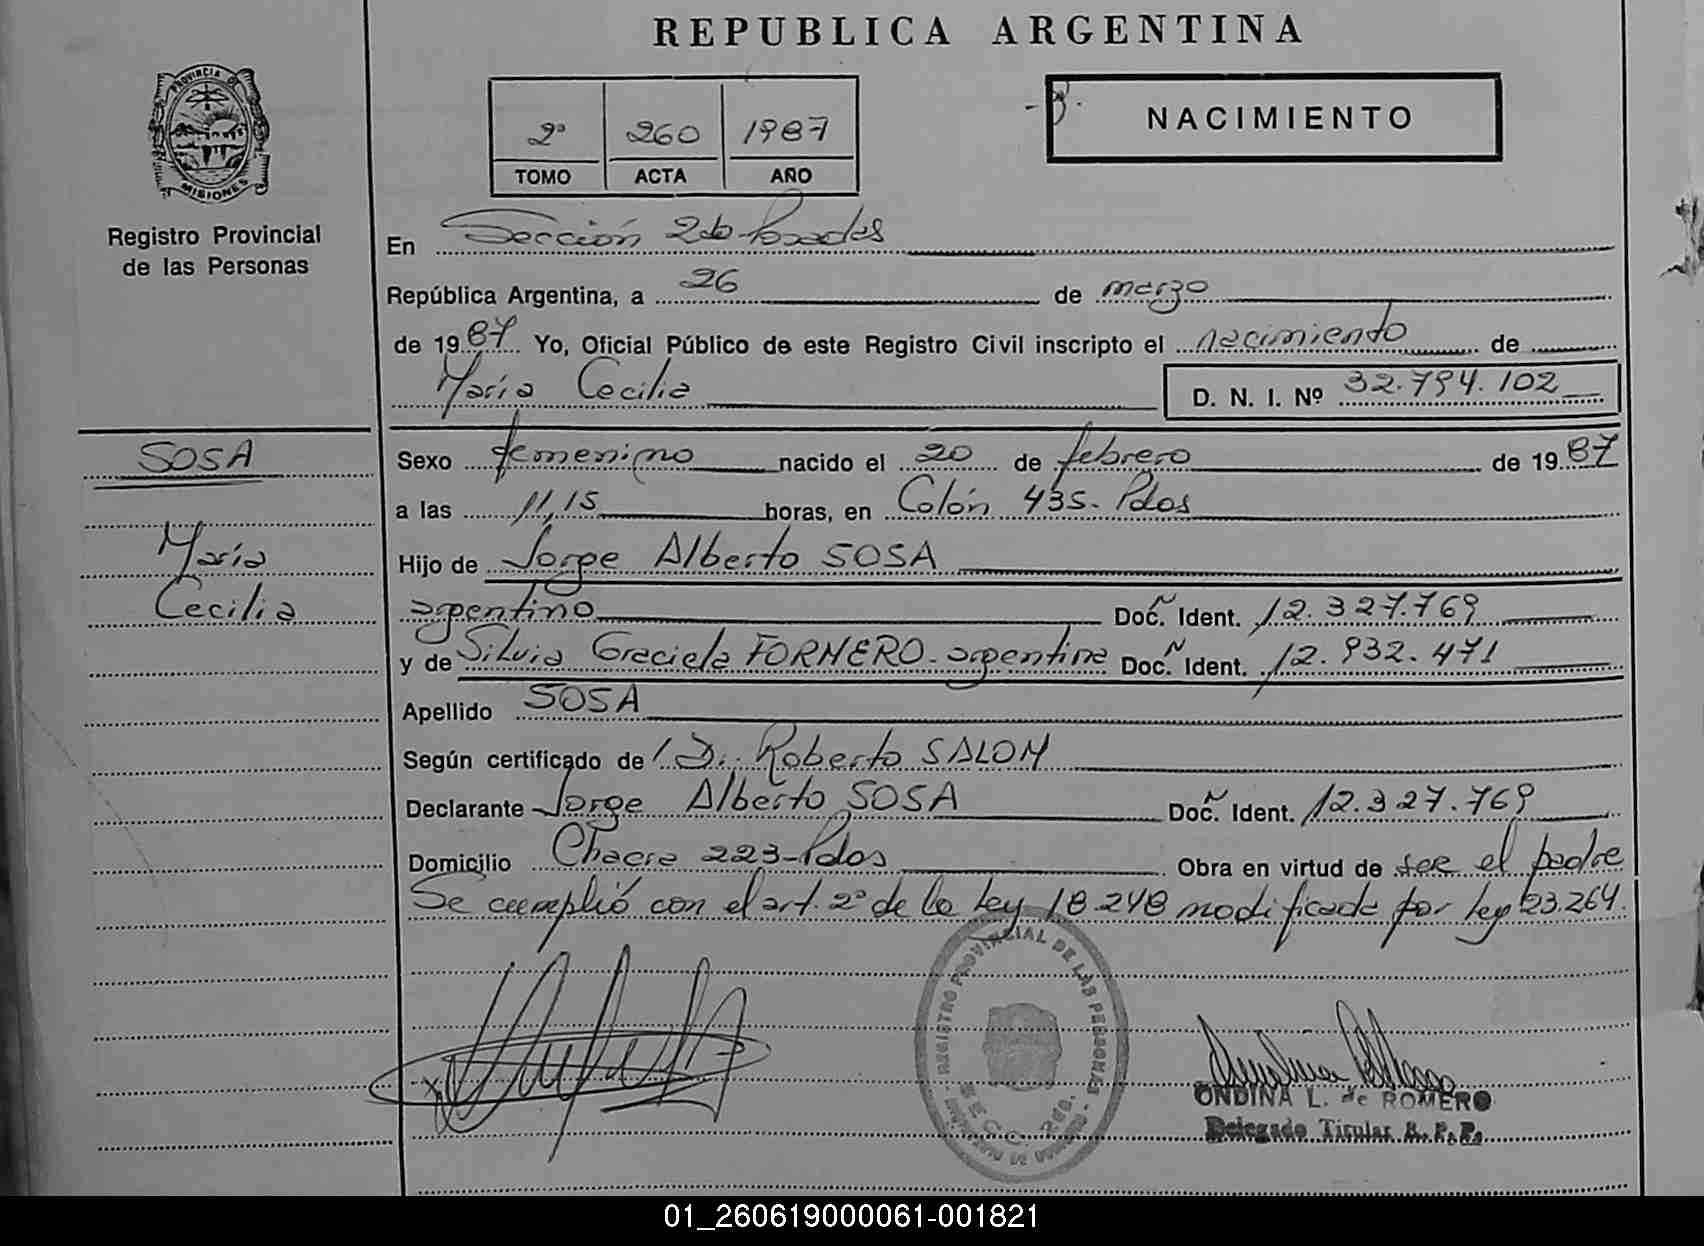 REPUBLICA ARGENTINA
PROVINCIA DE
MISIONES
Registro Provincial
de las Personas
2º 260 1987
TOMO ACTA AÑO
NACIMIENTO
En Sección 2da Posadas
República Argentina, a 26 de marzo
de 1987 Yo, Oficial Público de este Registro Civil inscripto el nacimiento de
María Cecilia D. N. I. Nº 32.794.102
SOSA
María
Cecilia
Sexo femenino nacido el 20 de febrero de 1987
a las 11,15 horas, en Colón 435- Pdas
Hijo de Jorge Alberto SOSA
argentino Doc. Ident. 12.327.769
y de Silvia Graciela FORNERO - argentina Doc. Ident. 12.932.471
Apellido SOSA
Según certificado de Dr. Roberto SALOM
Declarante Jorge Alberto SOSA Doc. Ident. 12.327.769
Domicilio Chacra 223-Pdas Obra en virtud de ser el padre
Se cumplió con el art. 2º de la Ley 18.248 modificada por ley 23.264.
REGISTRO PROVINCIAL DE LAS PERSONAS
ONDINA L. de ROMERO
Delegado Titular R. P. P.
01_260619000061-001821